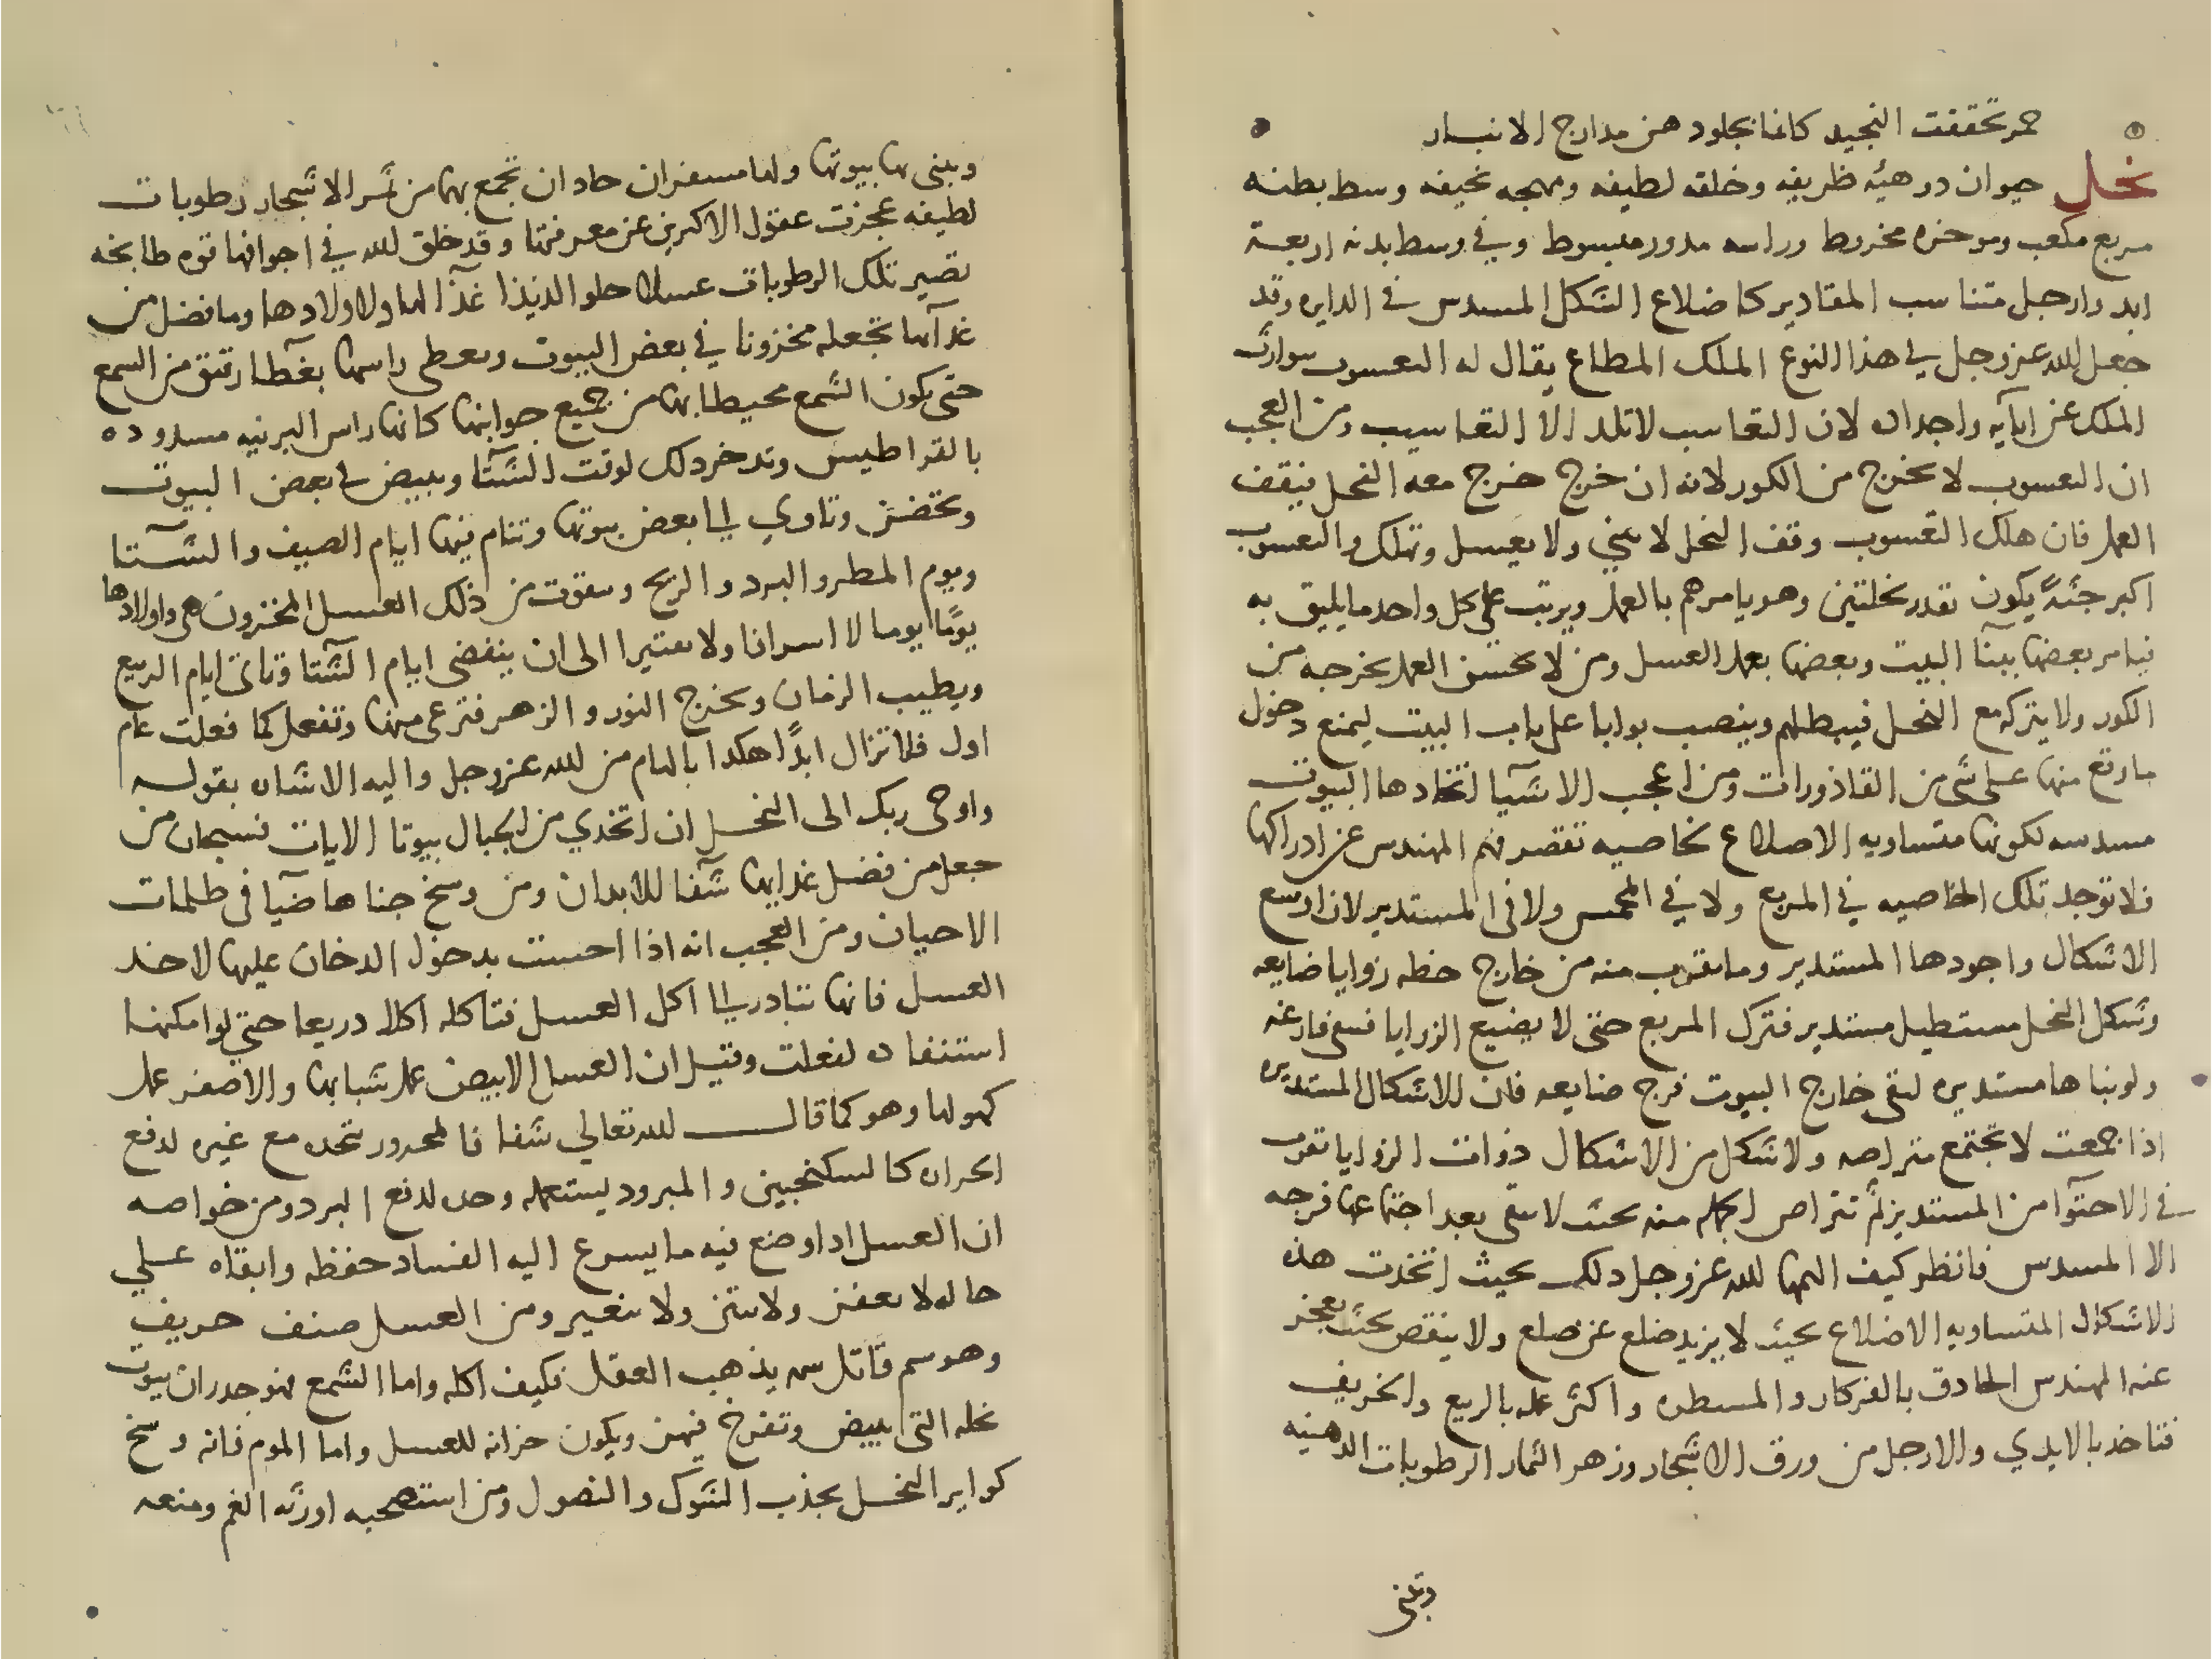 حمر تحققت النجيد كانما بجلود هن مدارج الانبار
نحل حيوان ذو هيئه ظريفه وخلقه لطيفه ومهجه نحيفه وسط بطنه
مربع مكعب وموخره مخروط وراسه مدور مبسوط وفي وسط بدنه اربعة
ايد وارجل متناسب المقادير كاضلاع الشكل المسدس في الدايره وقد
جعل الله عزوجل في هذا النوع الملك المطاع يقال له اليعسوب يوارث
الملك عن ابآيه واجداده لان اليعاسب لا تلد الا اليعاسيب ومن العجب
ان اليعسوب لا يخرج من الكور لانه ان خرج خرج معه النحل فيقف
العمل فان هلك اليعسوب وقف النحل لا يبني ولا يعسل وتهلك واليعسوب
اكبر جثةً يكون بقدر نحلتين وهو يامرهم بالعمل ويرتب على كل واحد ما يليق به
فيامر بعضها ببنآ البيت وبعضها بعمل العسل ومن لا يحسن العمل يخرجه من
الكور ولا يتركه مع النحل فيبطلهم وينصب بوابا على باب البيت ليمنع دخول
ما وقع منها على شي من القاذورات ومن اعجب الاشيآ اتخاذها البيوت
مسدسه لكونها متساويه الاضلاع بخاصيه تقصر فهم المهندس عن ادراكها
فلا توجد تلك الخاصيه في المربع ولا في المخمس ولا في المستدير لان اوسع
الاشكال واجودها المستدير وما يقرب منه من خارج خطه زوايا ضايعه
وشكل النحل مستطيل مستدير فترك المربع حتى لا يضيع الزوايا فتبقى فارغه
ولو بناها مستديره لبقى خارج البيوت فرج ضايعه فان الاشكال المستديره
اذا جمعت لا تجتمع متراصه ولا شكل من الاشكال ذوات الزوايا تقرب
في الاحتوآ من المستدير ثم تتراص الجمله منه بحيث لا يبقى بعد اجتماعها فرجه
الا المسدس فانظر كيف الهمها الله عزوجل ذلك بحيث اتخذت هذه
الاشكال المتساويه الاضلاع بحيث لا يزيد ضلع عن ضلع ولا ينقص بحيث يعجز
عنه المهندس الحادق بالفركار والمسطره واكثر عمله بالربيع والخريف
فتاخذ بالايدي والارجل من ورق الاشجار وزهر الثمار الرطوبات الدهنيه
وتبنى
ويبنى بها بيوتها ولها مسفران حادان تجمع بهما من ثمر الاشجار رطوبات
لطيفه عجزت عقول الاكبرين عن معرفتها وقد خلق الله في اجوافها قوه طابخه
تصير تلك الرطوبات عسلا حلوا لذيذا غذآ لها ولاولادها وما فضل من
غدآها تجعله مخزونا في بعض البيوت وتعطى راسها بغطآ رقيق من الشمع
حتى يكون الشمع محيطا بها من جميع جوانبها كانها راس البرنيه مسدوده
بالقراطيس وتدخر ذلك لوقت الشتآ وتبيض في بعض البيوت
وتحضن وتاوي الى بعض بيوتها وتنام فيها ايام الصيف والشتآ
ويوم المطر والبرد والريح وتتقوت من ذلك العسل المخزون هى واولادها
يومًا يوما لا اسرافا ولا تقتيرا الى ان ينقضى ايام الشتآ وتاتى ايام الربيع
ويطيب الزمان ويخرج النور والزهر فترعى منها وتفعل كما فعلت عام
اول فلا تزال ابدًا هكذا بالهام من الله عزوجل واليه الاشاره بقوله
واوحى ربك الى النحل ان اتخذي من الجبال بيوتا الايات فسبحان من
جعل من فضل غدايها شفآ للابدان ومن وسخ جناها ضيآ فى ظلمات
الاحيان ومن العجب انه اذا احست بدخول الدخان عليها لاخذ
العسل فانها تتبادر الى اكل العسل فتاكله اكلا دريعا حتى لو امكنها
استنفاده لفعلت وقيل ان العسل الابيض عمل شبابها والاصفر عمل
كهولها وهو كما قال الله تعالي شفا فالمحرور يتخده مع غيره لدفع
الحراره كالسكنجبين والمبرود يستعمله وحده لدفع البرد ومن خواصه
ان العسل ادا وضع فيه ما يسرع اليه الفساد حفظه وابقاه علي
حاله لا يعفن ولا ينتن ولا يتغير ومن العسل صنف حريف
وهو سم قاتل شمه يذهب العقل فكيف اكله واما الشمع فهو جدران بيوت
نحله التى تبيض وتفرخ فيهن ويكون خزانه للعسل واما الموم فانه وسخ
كواير النحل يجذب الشوك والنصول ومن استصحبه اورثه الغم ومنعه